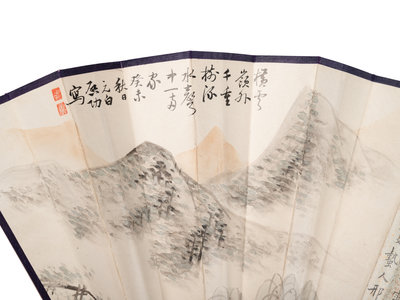 橫雲
嶺外
千重
樹流
水聲
中一兩
家
癸未
秋日
元白
啟功
寫
藝人和